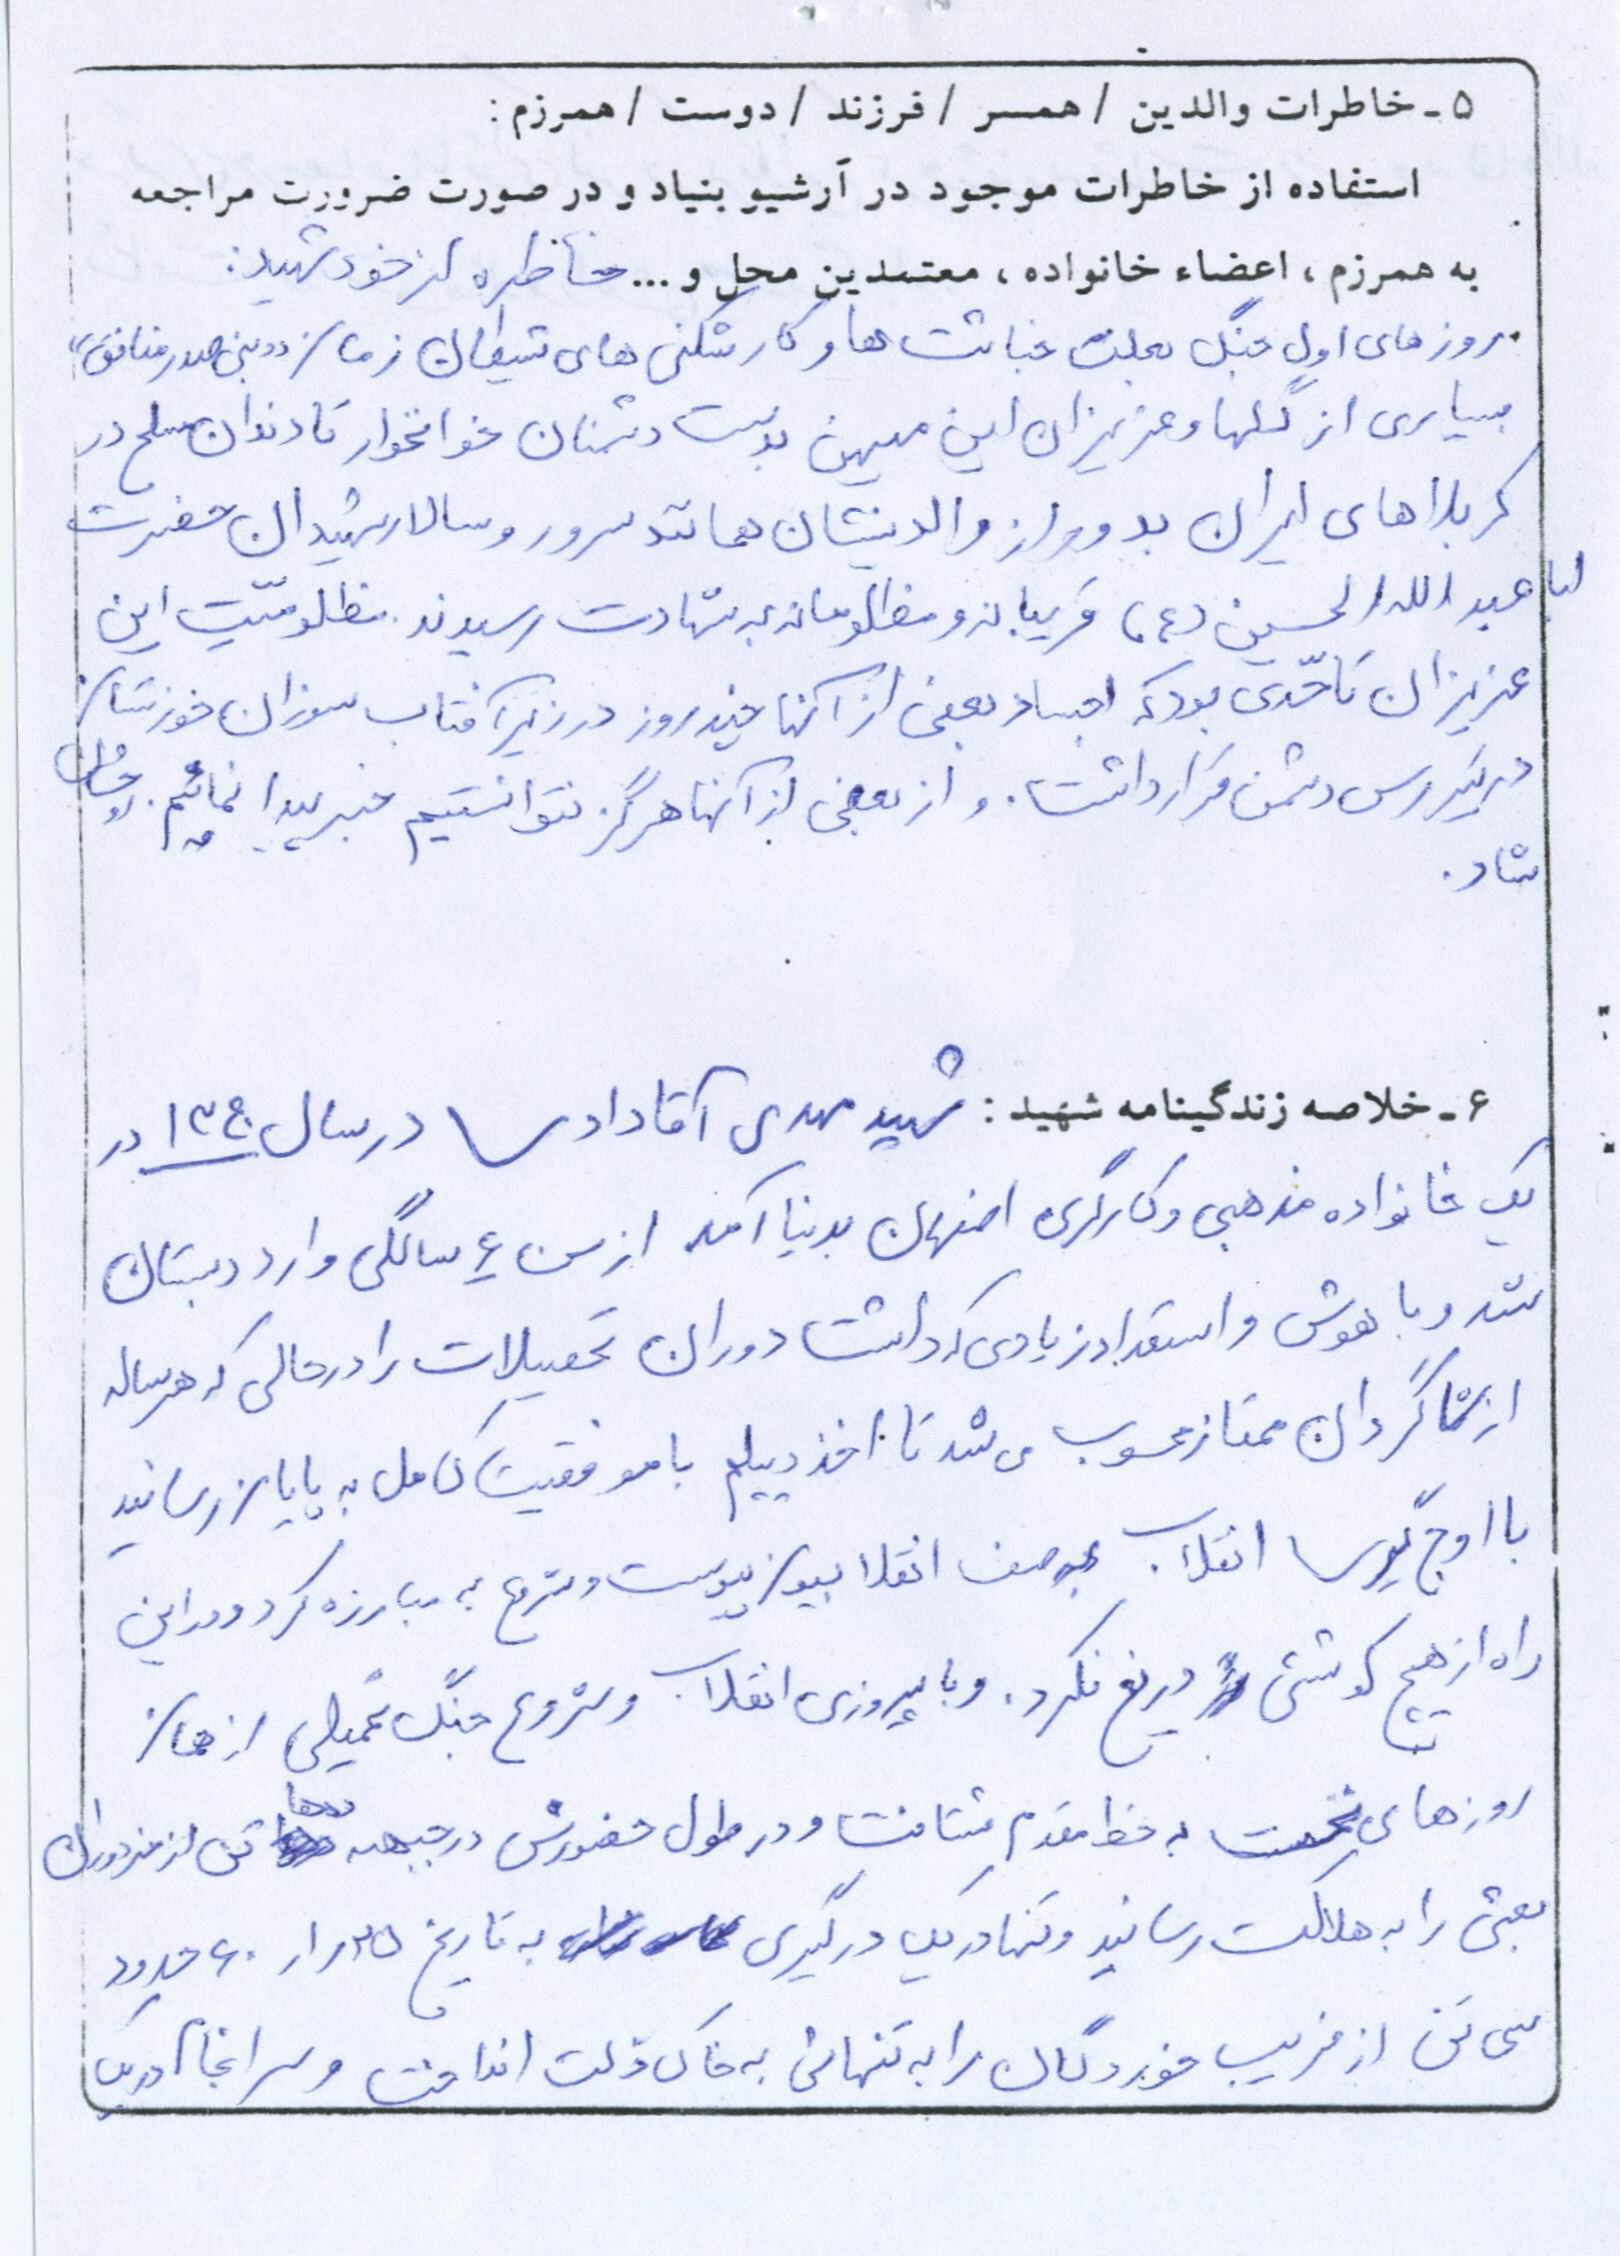 ۵ ـ خاطرات والدین / همسر / فرزند / دوست / همرزم :
استفاده از خاطرات موجود در آرشیو بنیاد و در صورت ضرورت مراجعه
به همرزم ، اعضاء خانواده ، معتمدین محل و ... خاطره از خود شهید :
روزهای اول جنگ بعلت خباثت ها و کارشکنی های شیطان زمان بنی صدر منافق"
بسیاری از گلها و عزیزان این میهن بدست دشمنان خونخوار تا دندان مسلح در
کربلاهای ایران بدور از والدینشان همانند سرور و سالار شهیدان حضرت
ابا عبدالله الحسین (ع) غریبانه و مظلومانه به شهادت رسیدند . مظلومیّت این
عزیزان تا حّدی بود که اجساد بعضی از آنها چند روز در زیر آفتاب سوزان خوزستان
در تیررس دشمن قرار داشت . و از بعضی از آنها هرگز نتوانستیم خبر پیدا نمائیم . روحشان
شاد .
۶ ـ خلاصه زندگینامه شهید : شهید مهدی آقادادی در سال ۱۳۴۰ در
یک خانواده مذهبی و کارگری اصفهان بدنیا آمد از سن ۶ سالگی وارد دبستان
شد و با هوش و استعداد زیادی که داشت دوران تحصیلات را درحالی که هرساله
از شاگردان ممتاز محسوب می شد تا اخذ دیپلم با موفقیت کامل به پایان رسانید
با اوج گیری انقلاب به صف انقلابیون پیوست و شروع به مبارزه کرد و در این
راه از هیچ کوششی دریغ نکرد . و با پیروزی انقلاب و شروع جنگ تحمیلی از همان
روزهای نخست به خط مقدم شتافت و در طول حضورش در جبهه دهها تن از مزدوران
بعثی را به هلاکت رسانید و تنها در یک درگیری به تاریخ ۲۵ر۱ر۶۰ حدود
سی تن از فریب خوردگان را به تنهائی به خاک ذلت انداخت و سرانجام در یک